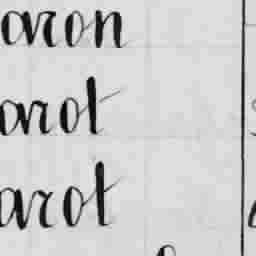 aron
arot
arot